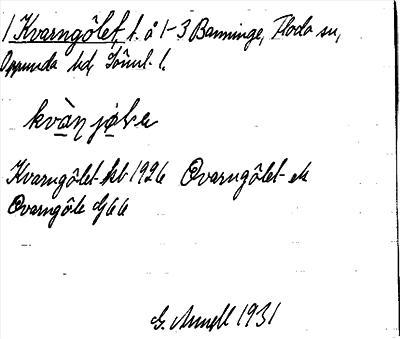 1 Kvarngôlet, t. å 1-3 Banninge, Floda sn,
Oppunda hd, Söml. l.
kvàṇ jǫ̀
Kvarngôlet kb 1926 Qvarngôlet ek
Qvarngôle G66
G. Arnell 1931